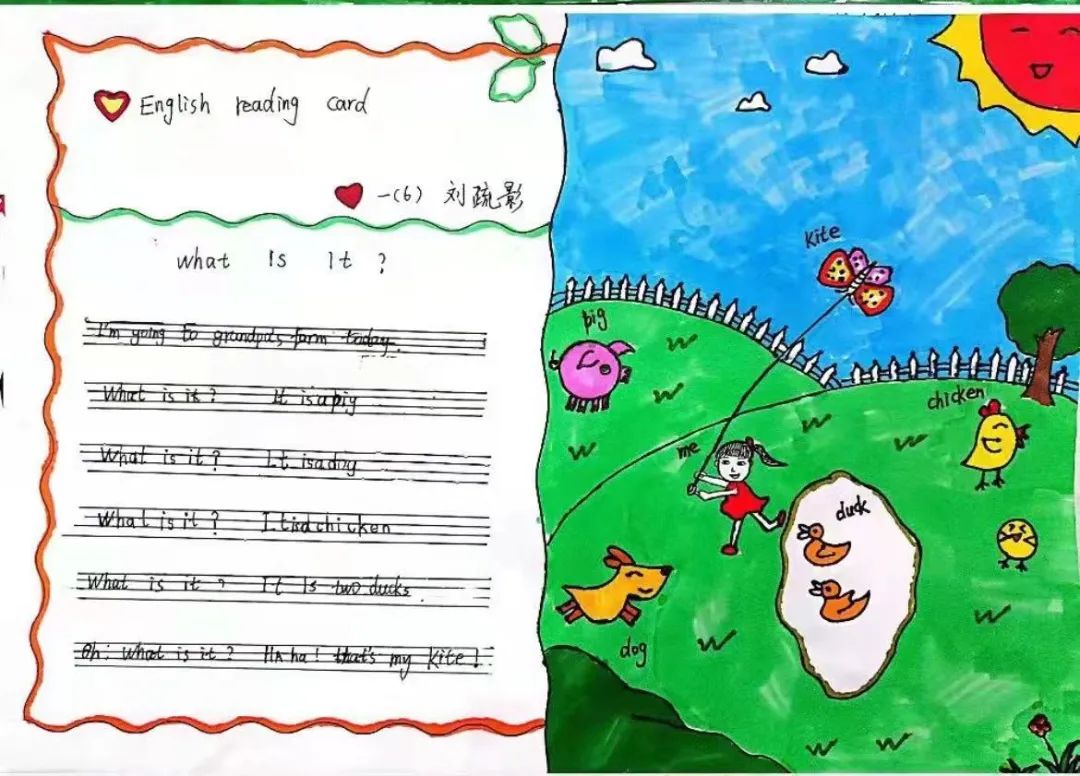 English reading card
一(6) 刘疏影
what is it ?
I'm going to grandpa's farm today.
What is it ? It is a pig
What is it ? It is a dog
What is it ? It is a chicken
What is it ? It is two ducks.
Oh: what is it ? Ha ha ! that's my kite !
kite
pig
chicken
me
duck
dog